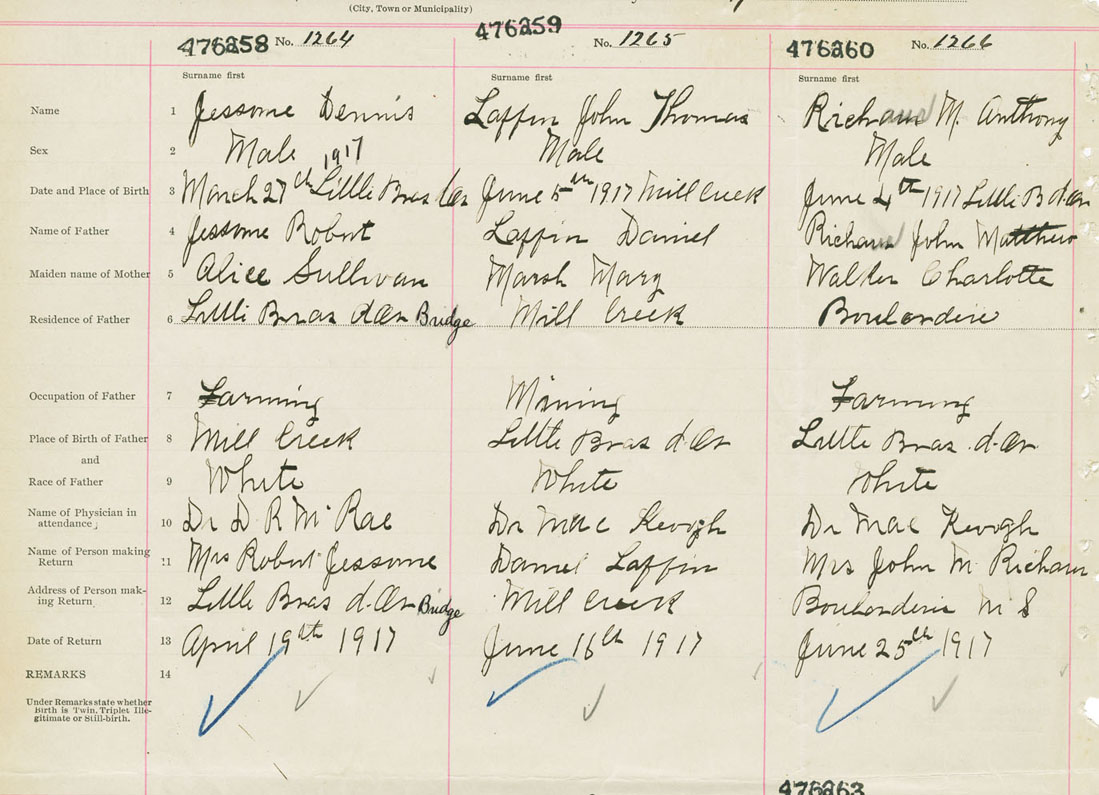 (City, Town or Municipality)
476258 No. 1264 476259 No. 1265 476260 No. 1266
Surname first Surname first Surname first
Name 1 Jessome Dennis Laffin John Thomas Richard M. Anthony
Sex 2 Male Male Male
Date and Place of Birth 3 March 27th 1917 Little Bras d'Or June 5th 1917 Mill Creek June 4th 1917 Little B d'Or
Name of Father 4 Jessome Robert Laffin Daniel Richard John Matthew
Maiden name of Mother 5 Alice Sullivan Marsh Mary Walker Charlotte
Residence of Father 6 Little Bras d'Or Bridge Mill Creek Boulardrie
Occupation of Father 7 Farming Mining Farming
Place of Birth of Father 8 Mill Creek Little Bras d'Or Little Bras d'Or
and
Race of Father 9 White White White
Name of Physician in
attendance 10 Dr D R Mc Rae Dr Mac Keough Dr Mac Keough
Name of Person making
Return 11 Mrs Robert Jessome Daniel Laffin Mrs John M Richard
Address of Person mak-
ing Return 12 Little Bras d'Or Bridge Mill Creek Boulardrie N S
Date of Return 13 April 19th 1917 June 16th 1917 June 25th 1917
REMARKS 14
Under Remarks state whether
Birth is Twin, Triplet Ille-
gitimate or Still-birth.
476263